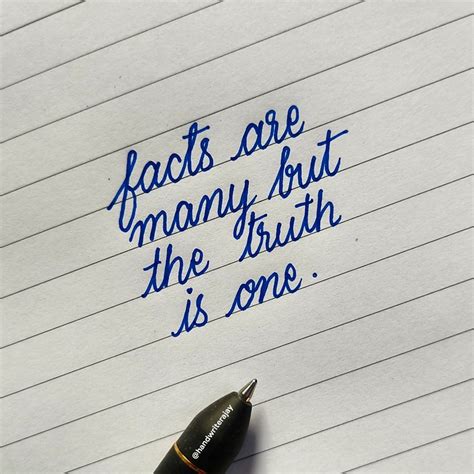 facts are
many but
the truth
is one.
@handwriterajay